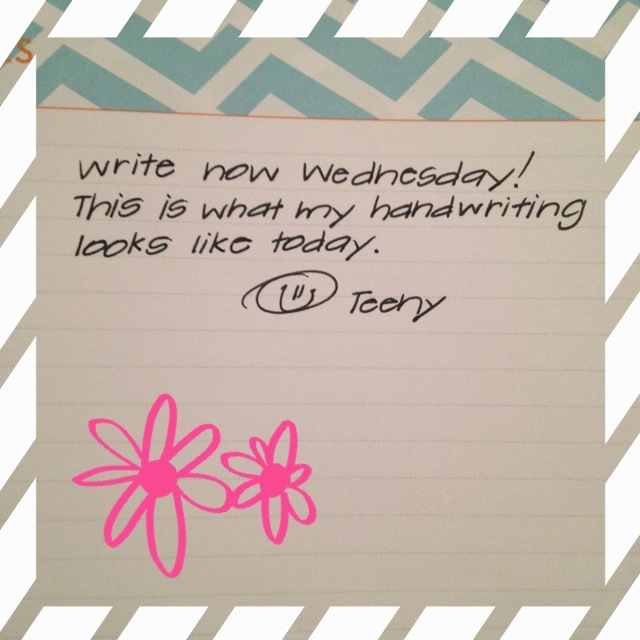 ES
Write now Wednesday!
This is what my handwriting
looks like today.
Teeny